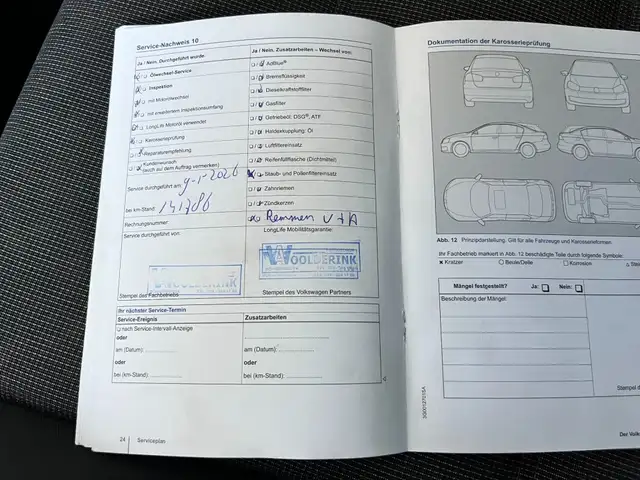 Service-Nachweis 10
Ja / Nein, Durchgeführt wurde:
Ölwechsel-Service
Inspektion
mit Motorölwechsel
mit erweitertem Inspektionsumfang
LongLife Motoröl verwendet
Karosserieprüfung
Reparaturempfehlung
Kundenwunsch
(auf dem Auftrag vermerken)
Service durchgeführt am: 9-1-2026
bei km-Stand: 141786
Rechnungsnummer:
Service durchgeführt von:
WOOLDERINK
Stempel des Fachbetriebs
Ja / Nein, Zusatzarbeiten – Wechsel von:
AdBlue®
Bremsflüssigkeit
Dieselkraftstofffilter
Gasfilter
Getriebeöl: DSG®, ATF
Haldexkupplung: Öl
Luftfiltereinsatz
Reifenfüllflasche (Dichtmittel)
Staub- und Pollenfiltereinsatz
Zahnriemen
Zündkerzen
Remmen V+A
LongLife Mobilitätsgarantie:
WOOLDERINK
Stempel des Volkswagen Partners
Ihr nächster Service-Termin
Service-Ereignis
nach Service-Intervall-Anzeige
oder
am (Datum):
oder
bei (km-Stand):
Zusatzarbeiten
am (Datum):
oder
bei (km-Stand):
24 Serviceplan
Dokumentation der Karosserieprüfung
Abb. 12 Prinzipdarstellung: Gilt für alle Fahrzeuge und Karosserieformen.
Ihr Fachbetrieb markiert in Abb. 12 beschädigte Teile durch folgende Symbole:
x Kratzer
Beule/Delle
Korrosion
Mängel festgestellt? Ja: Nein:
Beschreibung der Mängel:
Stempel